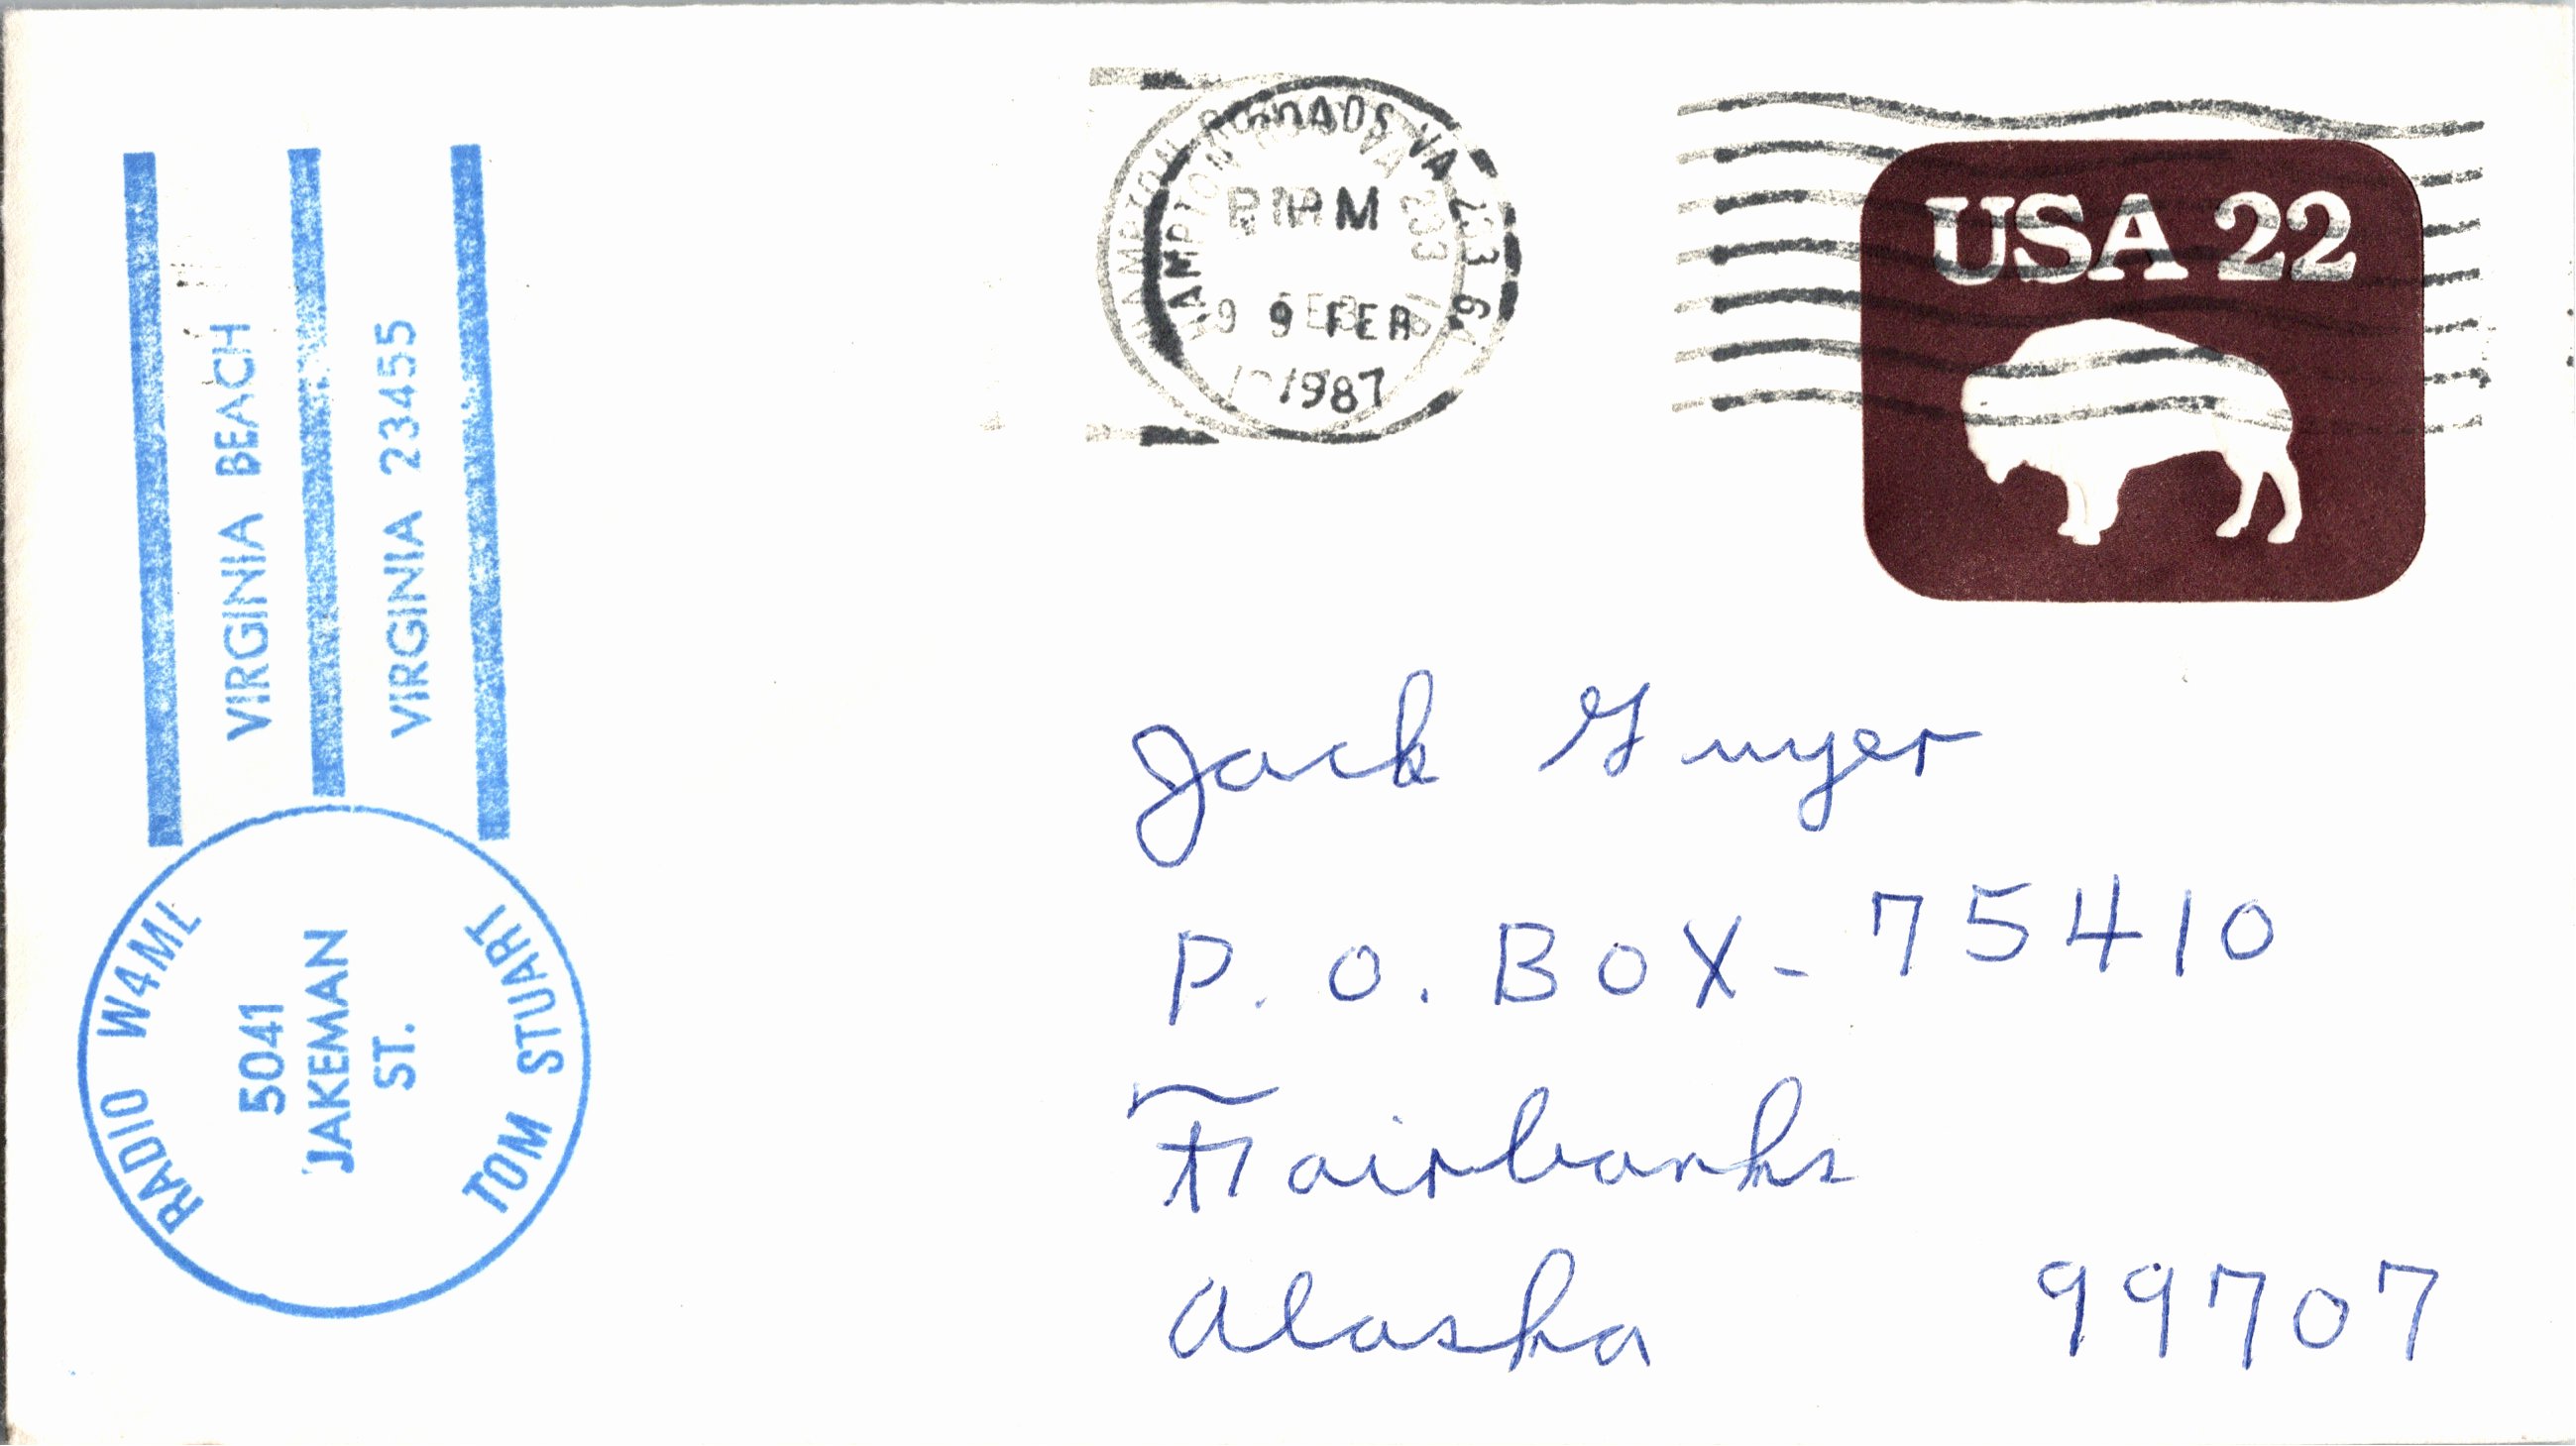 RADIO W4ML
5041
JAKEMAN
ST.
TOM STUART
VIRGINIA BEACH
VIRGINIA 23455
HAMPTON ROADS VA
PM
9 FEB
1987
USA 22
Jack Guyer
P.O. BOX - 75410
Fairbanks
Alaska 99707